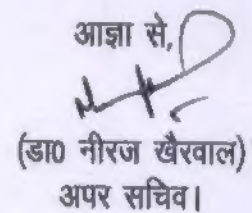 आज्ञा से,
(डा0 नीरज खैरवाल)
अपर सचिव।